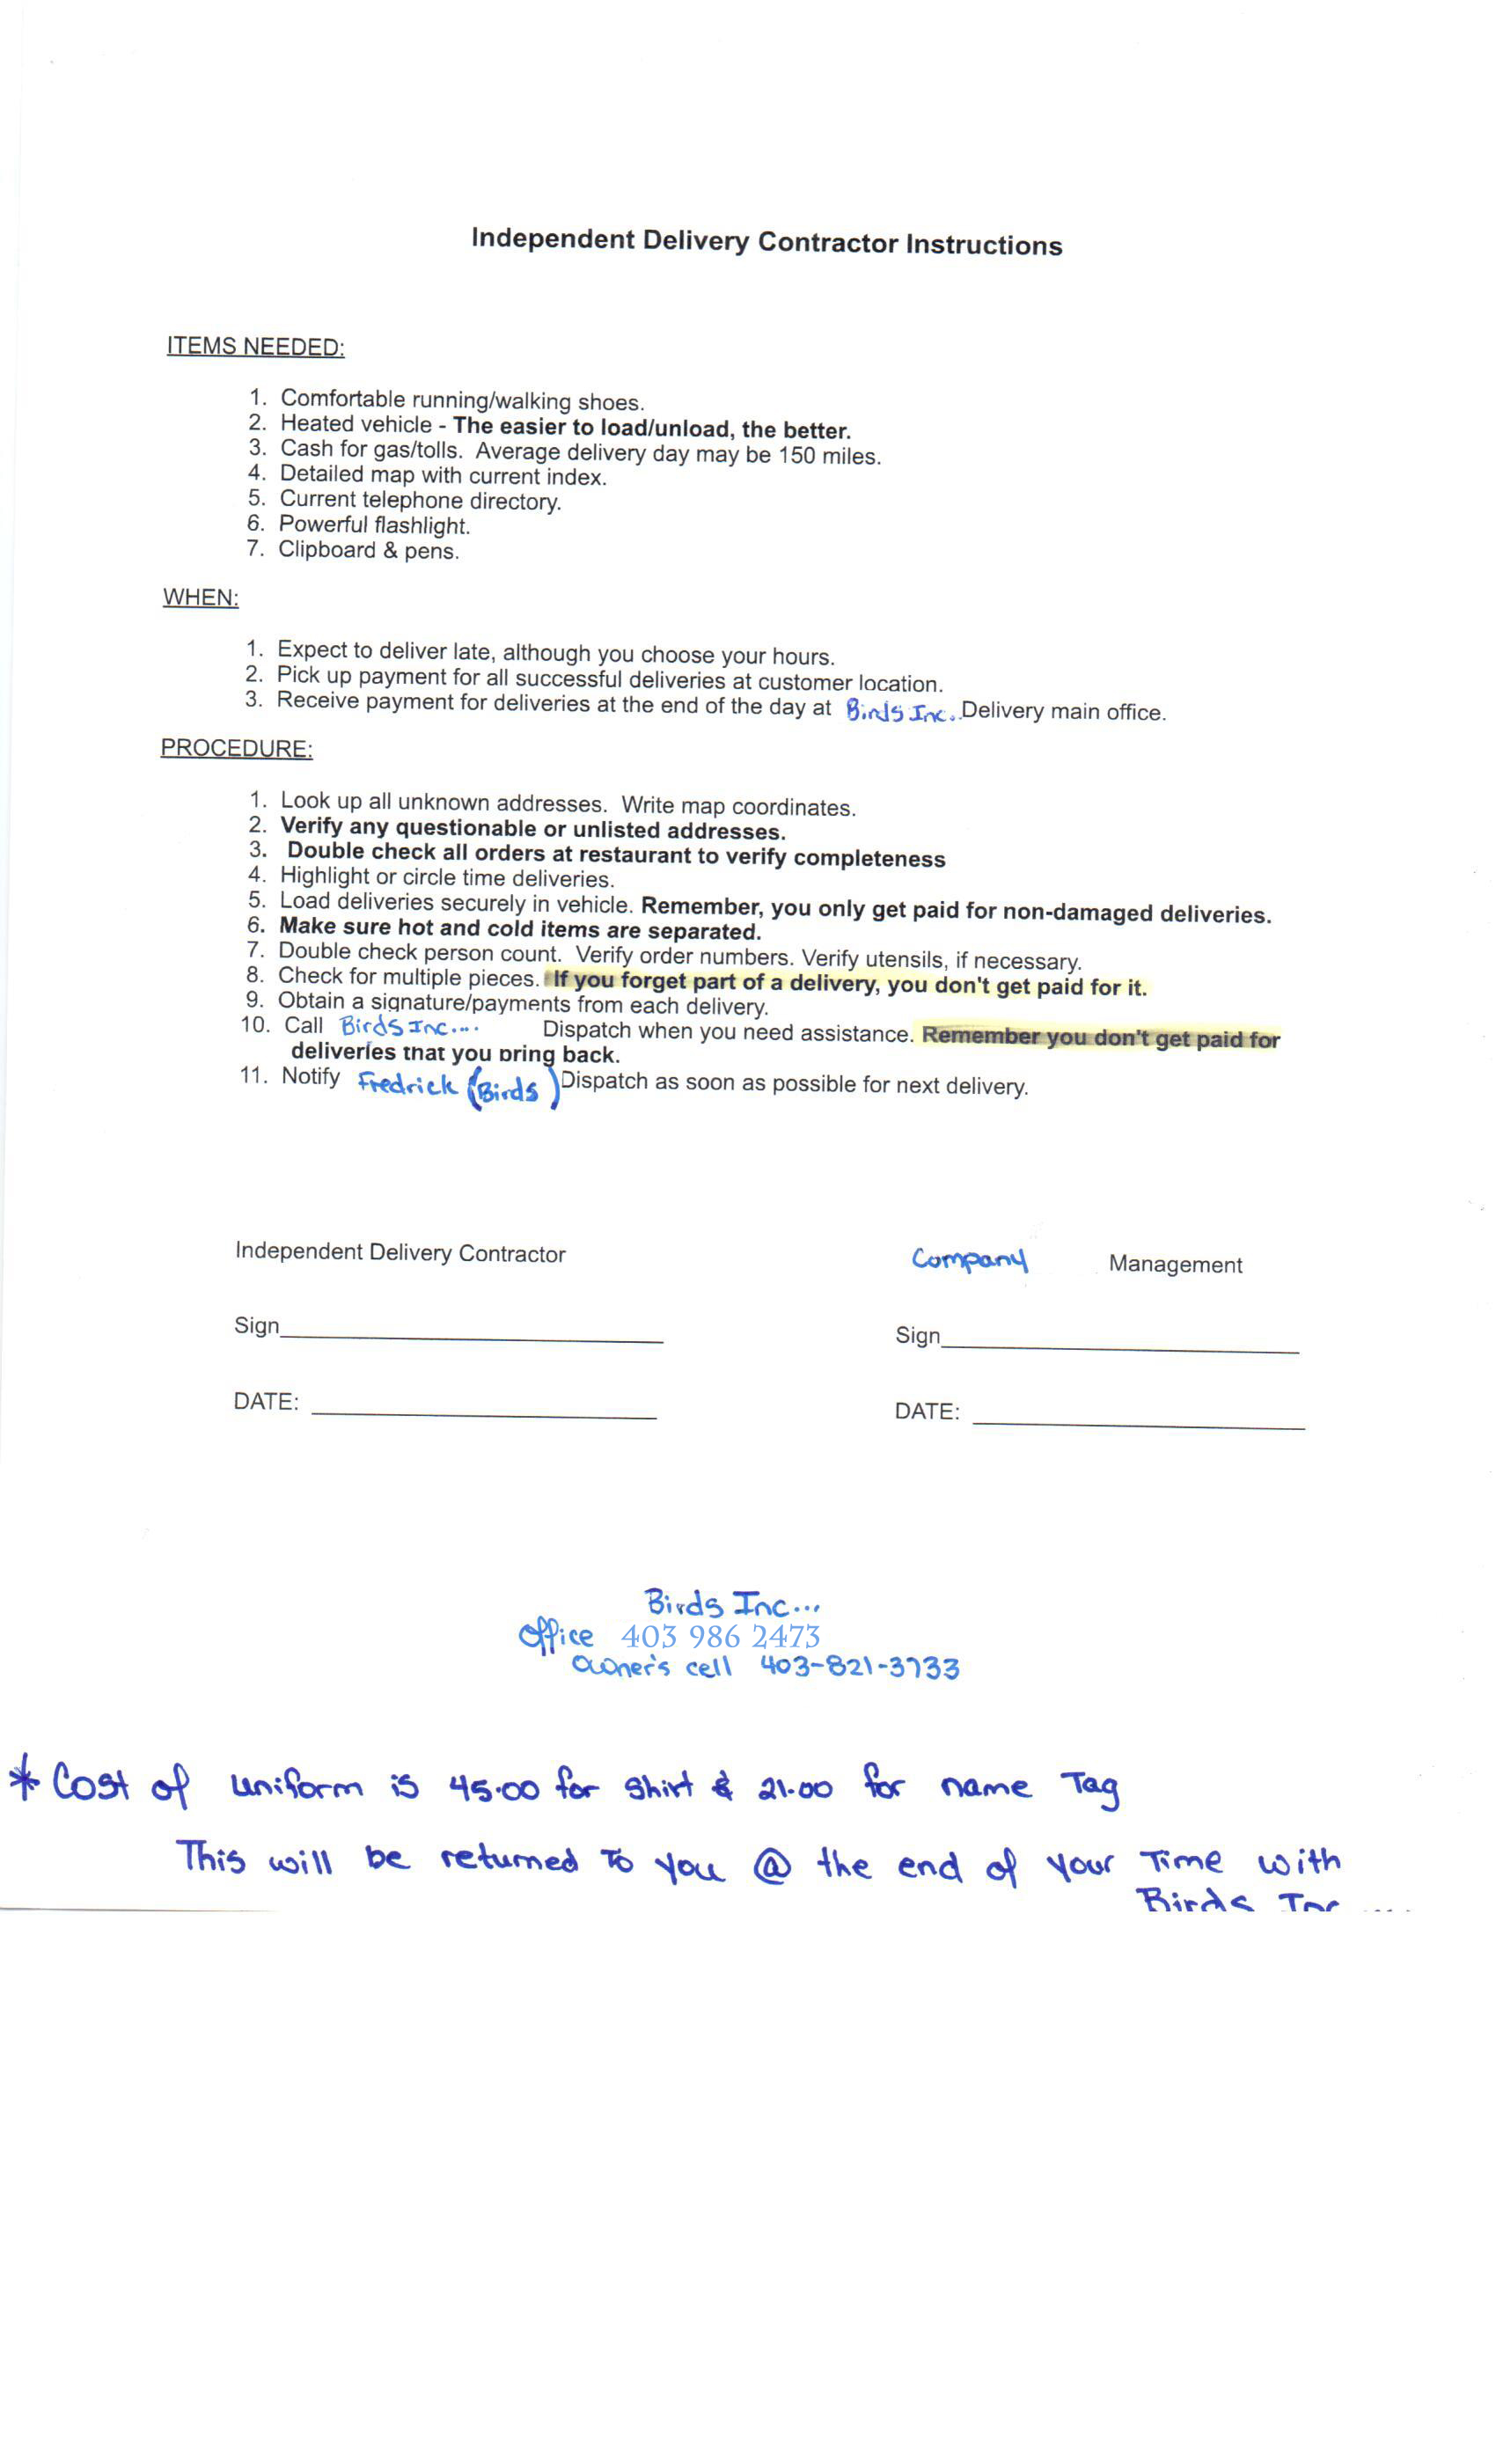 Independent Delivery Contractor Instructions
ITEMS NEEDED:
1. Comfortable running/walking shoes.
2. Heated vehicle - The easier to load/unload, the better.
3. Cash for gas/tolls. Average delivery day may be 150 miles.
4. Detailed map with current index.
5. Current telephone directory.
6. Powerful flashlight.
7. Clipboard & pens.
WHEN:
1. Expect to deliver late, although you choose your hours.
2. Pick up payment for all successful deliveries at customer location.
3. Receive payment for deliveries at the end of the day at Birds Inc.. Delivery main office.
PROCEDURE:
1. Look up all unknown addresses. Write map coordinates.
2. Verify any questionable or unlisted addresses.
3. Double check all orders at restaurant to verify completeness
4. Highlight or circle time deliveries.
5. Load deliveries securely in vehicle. Remember, you only get paid for non-damaged deliveries.
6. Make sure hot and cold items are separated.
7. Double check person count. Verify order numbers. Verify utensils, if necessary.
8. Check for multiple pieces. If you forget part of a delivery, you don't get paid for it.
9. Obtain a signature/payments from each delivery.
10. Call Birds Inc.... Dispatch when you need assistance. Remember you don't get paid for
deliveries that you bring back.
11. Notify Fredrick (Birds) Dispatch as soon as possible for next delivery.
Independent Delivery Contractor Company Management
Sign Sign
DATE: DATE:
Birds Inc...
Office 403 986 2473
owner's cell 403-821-3733
* Cost of uniform is 45.00 for shirt & 21.00 for name Tag
This will be returned To you @ the end of your Time with
Birds Inc ....